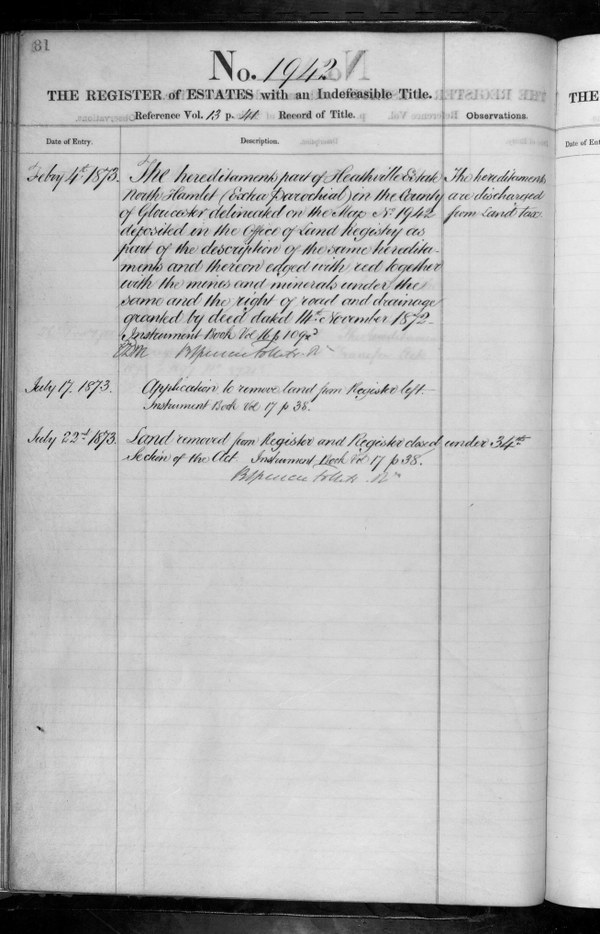 81
No. 1942
THE REGISTER of ESTATES with an Indefeasible Title.
Reference Vol. 13 p. 41 Record of Title.
Observations.
Date of Entry.
Description.
Feby 4th 1873.
The hereditaments part of Heathville Estate
North Hamlet (Extra Parochial) in the County
of Gloucester delineated on the Map No 1942
deposited in the Office of Land Registry as
part of the description of the same heredita-
ments and thereon edged with red together
with the mines and minerals under the
same and the right of road and drainage
granted by deed dated 14th November 1872 -
Instrument Book Vol 16 p 109
The hereditaments
are discharged
from Land tax.
July 17. 1873.
Application to remove land from Register left.
Instrument Book Vol 17 p 38.
July 22nd 1873.
Land removed from Register and Register closed under 34th
Section of the Act Instrument Book Vol 17 p 38.
THE
Date of Ent